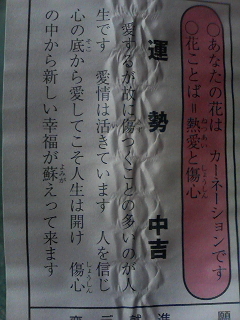 ○あなたの花は カーネーションです
○花ことば＝熱愛と傷心
運勢 中吉
愛するが故に傷つくことの多いのが人
生です 愛情は活きています 人を信じ
心の底から愛してこそ人生は開け 傷心
の中から新しい幸福が蘇えって来ます
願